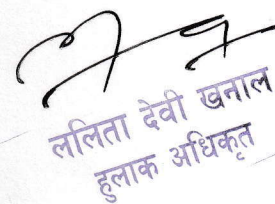 ललिता देवी खनाल
हुलाक अधिकृत